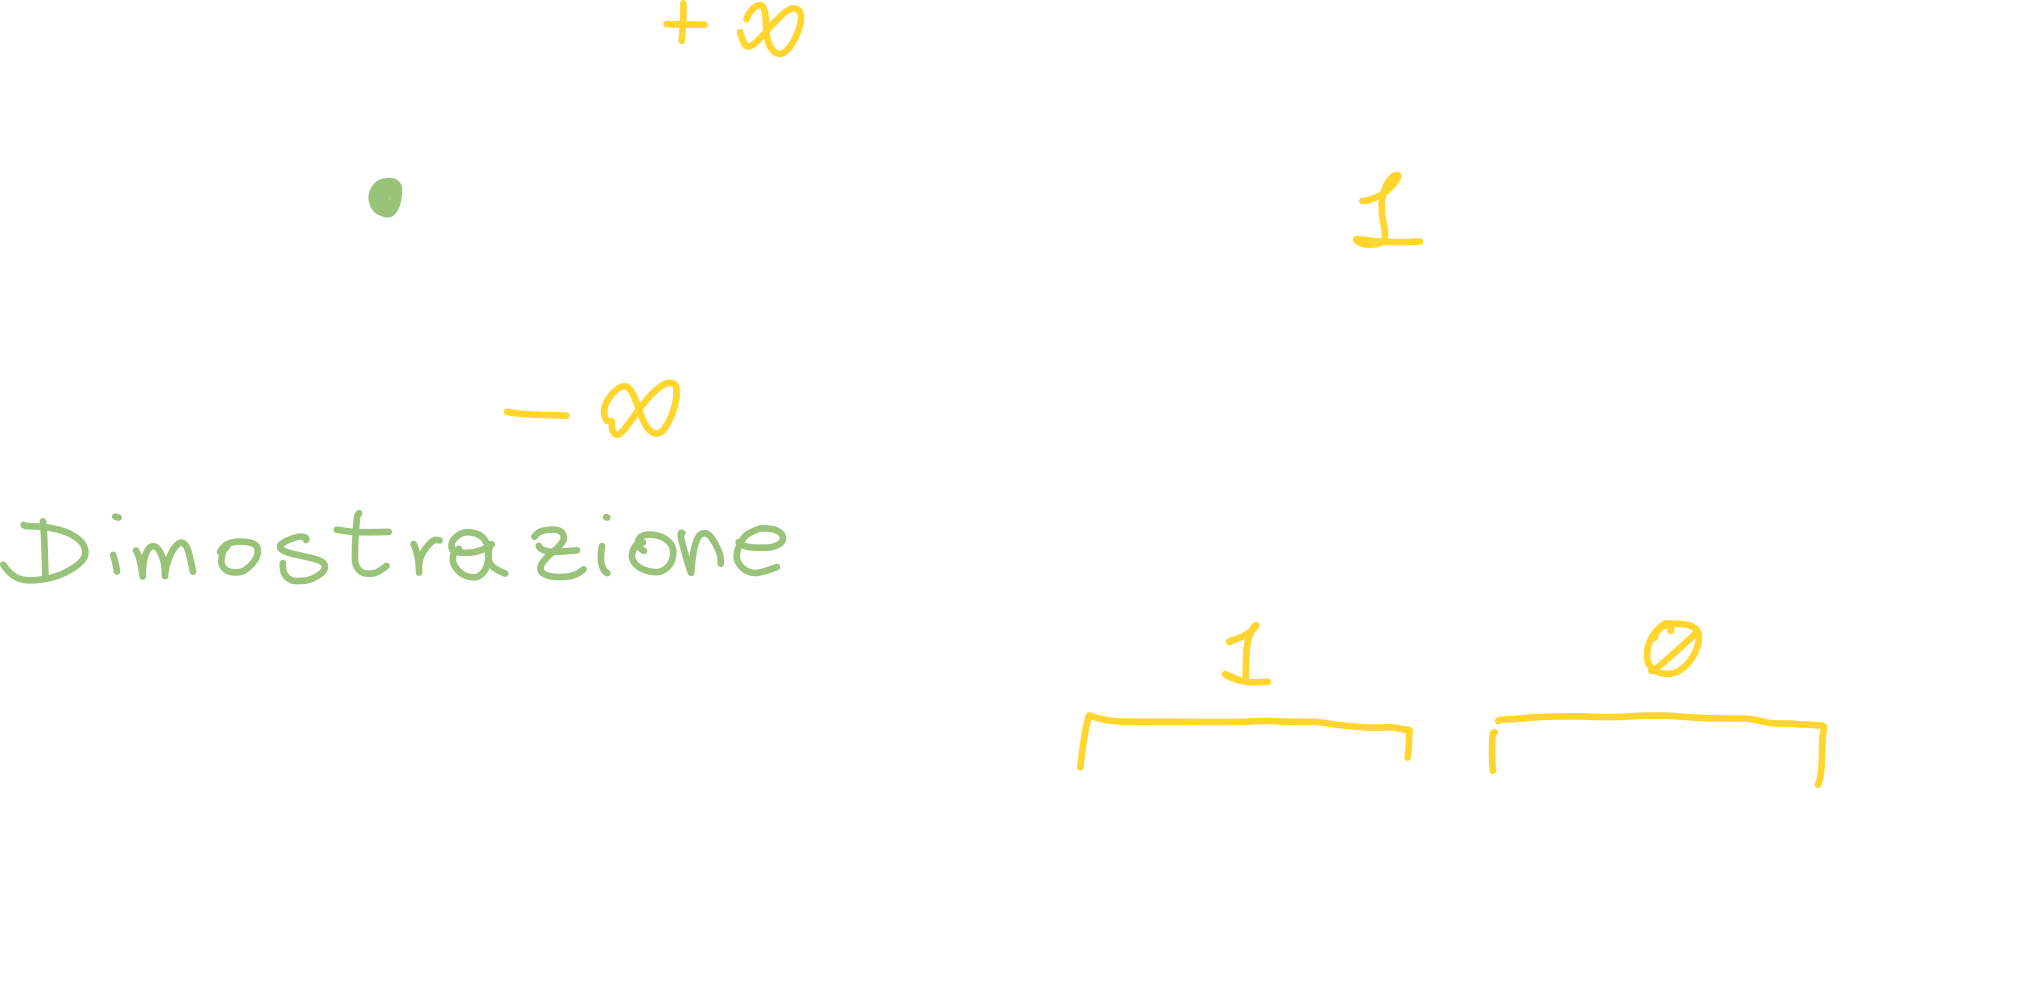 + ∞
1
- ∞
Dimostrazione
1 0